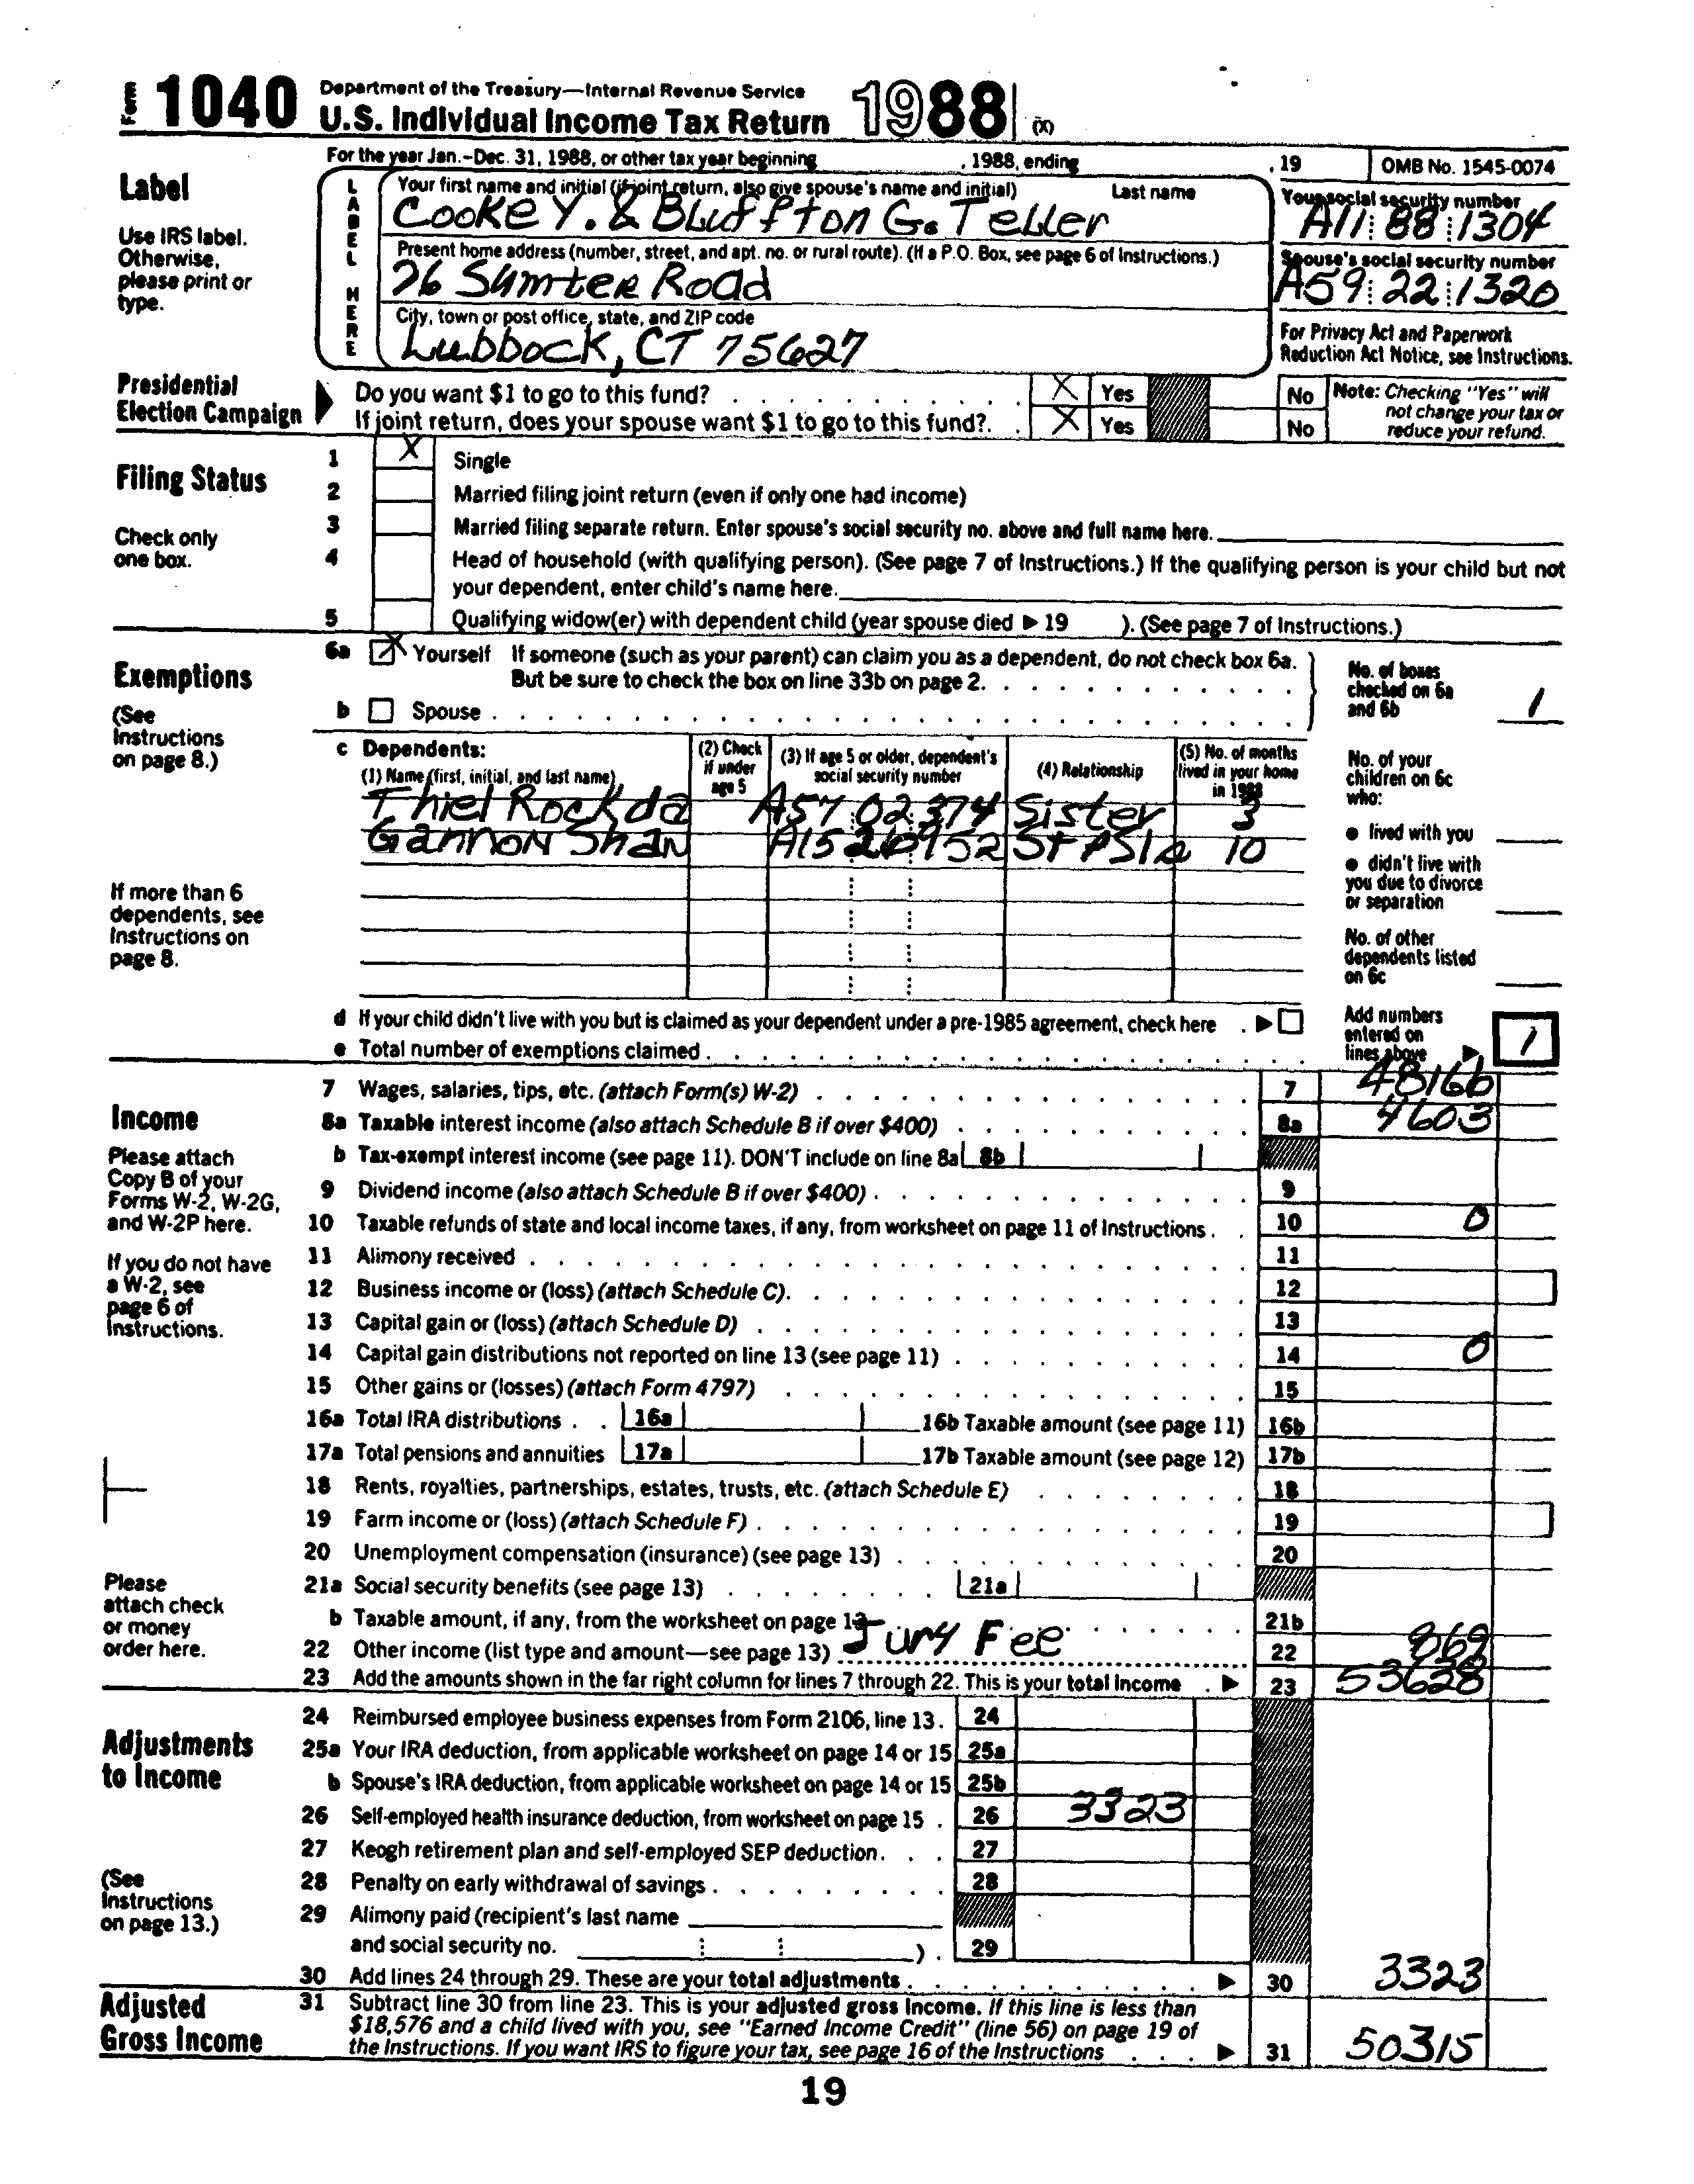 Form 1040 Department of the Treasury—Internal Revenue Service
U.S. Individual Income Tax Return 1988 (X)
For the year Jan.–Dec. 31, 1988, or other tax year beginning , 1988, ending , 19 OMB No. 1545-0074
Label
Use IRS label.
Otherwise,
please print or
type.
LABEL HERE
Your first name and initial (if joint return, also give spouse's name and initial) Last name
Cooke Y. & Bluffton G. Teller
Your social security number
A11 88 1304
Present home address (number, street, and apt. no. or rural route). (If a P.O. Box, see page 6 of Instructions.)
76 Sumter Road
Spouse's social security number
A59 22 1320
City, town or post office, state, and ZIP code
Lubbock, CT 75627
For Privacy Act and Paperwork
Reduction Act Notice, see Instructions.
Presidential
Election Campaign
Do you want $1 to go to this fund? X Yes No
If joint return, does your spouse want $1 to go to this fund?. X Yes No
Note: Checking "Yes" will
not change your tax or
reduce your refund.
Filing Status
Check only
one box.
1 X Single
2 Married filing joint return (even if only one had income)
3 Married filing separate return. Enter spouse's social security no. above and full name here.
4 Head of household (with qualifying person). (See page 7 of Instructions.) If the qualifying person is your child but not
your dependent, enter child's name here.
5 Qualifying widow(er) with dependent child (year spouse died ▶ 19 ). (See page 7 of Instructions.)
Exemptions
(See
Instructions
on page 8.)
6a X Yourself If someone (such as your parent) can claim you as a dependent, do not check box 6a.
But be sure to check the box on line 33b on page 2.
b Spouse
No. of boxes
checked on 6a
and 6b 1
c Dependents:
(1) Name (first, initial, and last name)
(2) Check
if under
age 5
(3) If age 5 or older, dependent's
social security number
(4) Relationship
(5) No. of months
lived in your home
in 1988
Thiel Rockda A57 02 374 Sister 3
Gannon Shan 10
If more than 6
dependents, see
Instructions on
page 8.
No. of your
children on 6c
who:
● lived with you
● didn't live with
you due to divorce
or separation
No. of other
dependents listed
on 6c
d If your child didn't live with you but is claimed as your dependent under a pre-1985 agreement, check here . ▶
e Total number of exemptions claimed
Add numbers
entered on
lines above ▶ 1
Income
Please attach
Copy B of your
Forms W-2, W-2G,
and W-2P here.
If you do not have
a W-2, see
page 6 of
Instructions.
Please
attach check
or money
order here.
7 Wages, salaries, tips, etc. (attach Form(s) W-2) 7 48166
8a Taxable interest income (also attach Schedule B if over $400) 8a 4603
b Tax-exempt interest income (see page 11). DON'T include on line 8a 8b
9 Dividend income (also attach Schedule B if over $400) 9
10 Taxable refunds of state and local income taxes, if any, from worksheet on page 11 of Instructions 10 0
11 Alimony received 11
12 Business income or (loss) (attach Schedule C). 12
13 Capital gain or (loss) (attach Schedule D) 13
14 Capital gain distributions not reported on line 13 (see page 11) 14 0
15 Other gains or (losses) (attach Form 4797) 15
16a Total IRA distributions 16a 16b Taxable amount (see page 11) 16b
17a Total pensions and annuities 17a 17b Taxable amount (see page 12) 17b
18 Rents, royalties, partnerships, estates, trusts, etc. (attach Schedule E) 18
19 Farm income or (loss) (attach Schedule F) 19
20 Unemployment compensation (insurance) (see page 13) 20
21a Social security benefits (see page 13) 21a
b Taxable amount, if any, from the worksheet on page 13 21b
22 Other income (list type and amount—see page 13) Jury Fee 22 869
23 Add the amounts shown in the far right column for lines 7 through 22. This is your total income . ▶ 23 53628
Adjustments
to Income
(See
Instructions
on page 13.)
24 Reimbursed employee business expenses from Form 2106, line 13. 24
25a Your IRA deduction, from applicable worksheet on page 14 or 15 25a
b Spouse's IRA deduction, from applicable worksheet on page 14 or 15 25b
26 Self-employed health insurance deduction, from worksheet on page 15 . 26 3323
27 Keogh retirement plan and self-employed SEP deduction. 27
28 Penalty on early withdrawal of savings 28
29 Alimony paid (recipient's last name
and social security no. ) . 29
30 Add lines 24 through 29. These are your total adjustments ▶ 30 3323
Adjusted
Gross Income
31 Subtract line 30 from line 23. This is your adjusted gross income. If this line is less than
$18,576 and a child lived with you, see "Earned Income Credit" (line 56) on page 19 of
the Instructions. If you want IRS to figure your tax, see page 16 of the Instructions ▶ 31 50315
19